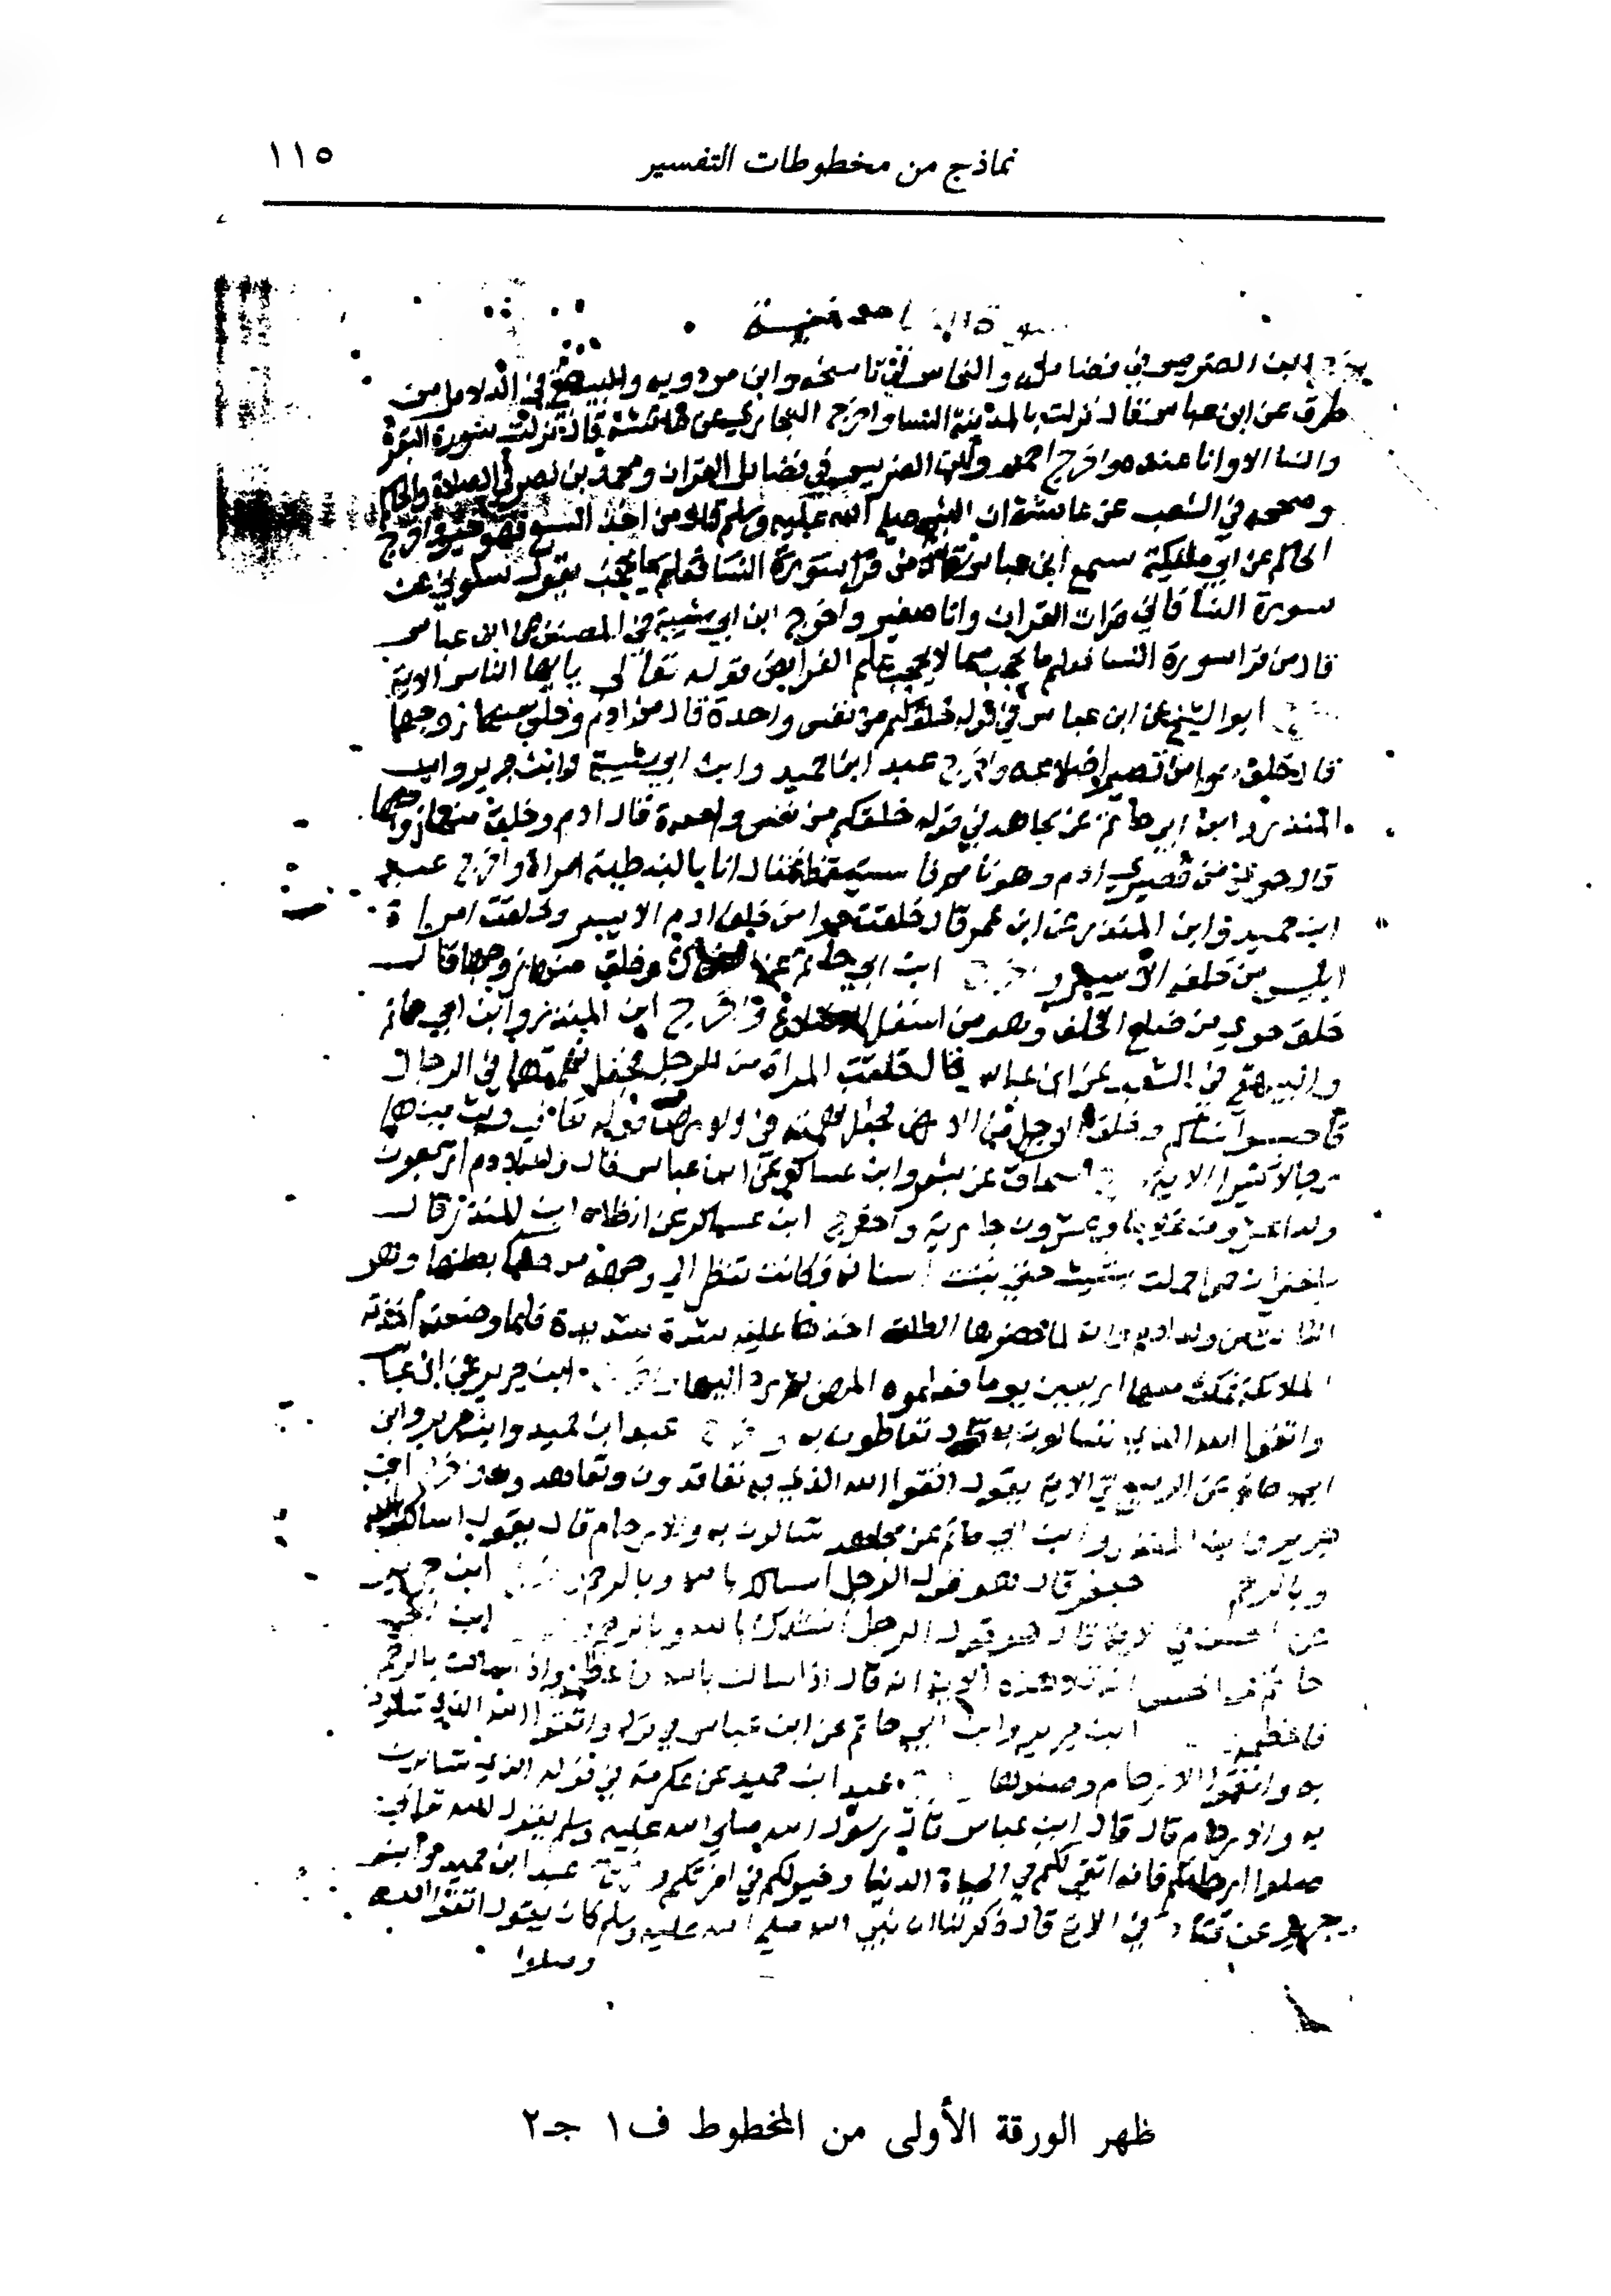 نماذج من مخطوطات التفسير ١١٥
سورة النسا مدنية
ابن الضريس في فضايله والنحاس في ناسخه وابن مردويه والبيهقي في الدلايل من
طرق عن ابن عباس قال نزلت بالمدينة النسا واخرج البخاري عن عائشة قالت نزلت سورة البقرة
والنسا الا وانا عنده واخرج احمد وابن الضريس في فضايل القران ومحمد بن نصر في الصلاة والحاكم
وصححه في الشعب عن عائشة ان النبي صلى الله عليه وسلم قال من اخذ السبع فهو حبر واخرج
الحاكم عن ابي مليكة سمع ابن عباس يقول سلوني عن
سورة النسا فاني قرات القران وانا صغير واخرج ابن ابي شيبة في المصنف عن ابن عباس
قال من قرا سورة النسا فعلم ما يحجب مما لا يحجب علم الفرايض قوله تعالى يا ايها الناس الاية
ابو الشيخ عن ابن عباس في قوله خلقكم من نفس واحدة قال من ادم وخلق منها زوجها
قال خلق حوا من قصيرا اضلاعه واخرج عبد ابن حميد وابن ابي شيبة وابن جرير وابن
المنذر وابن ابي حاتم عن مجاهد في قوله خلقكم من نفس واحدة قال ادم وخلق منها زوجها
قال حوا من قصيري ادم وهو نايم فاستيقظ فقال اثا بالنبطية امراة واخرج عبد
ابن حميد وابن المنذر عن ابن عمرو قال خلقت حوا من خلف ادم الايسر وخلقت امراة
ابليس من خلفه الايسر واخرج ابن ابي حاتم عن الضحاك وخلق منها زوجها قال
خلق حوى من ضلع الخلف وهو من اسفل الاضلاع واخرج ابن المنذر وابن ابي حاتم
والبيهقي في الشعب عن ابن عباس قال خلقت المراة من الرجل فجعل نهمتها في الرجال
فاحبسوا نساكم وخلق الرجل من الارض فجعل نهمته في الارض قوله تعالى وبث منهما
رجالا كثيرا الاية اسحاق عن بشر وابن عساكر عن ابن عباس قال ولد لادم اربعون
ولدا عشرون غلاما وعشرون جارية واخرج ابن عساكر عن ارطاة ابن المنذر قال
بلغني ان حوا حملت بشيث حتى نبتت اسنانه وكانت تنظر الى وجهه من صفا بطنها وهو
الثالث من ولد ادم وانه لما حضرها الطلق اخذها عليه شدة شديدة فلما وضعته اخذته
الملايكة فمكث معها اربعين يوما فعلموه الرمز ثم رد اليها ابن جرير عن ابن عباس
واتقوا الله الذي تسالون به قال تعاطون به واخرج عبد ابن حميد وابن جرير وابن
ابي حاتم عن الربيع في الاية يقول اتقوا الله الذي به تعاقدون وتعاهدون واخرج ابن
جرير وابن المنذر وابن ابي حاتم عن مجاهد تسالون به والارحام قال يقول اسالك بالله
وبالرحم قال هو قول الرجل اسالك بالله وبالرحم ابن جرير
عن الحسن في الاية قال هو قول الرجل انشدك بالله وبالرحم ابن ابي
حاتم عن الحسن انه تلا هذه الاية انه قال اذا سالت بالله فاعطه واذا سالت بالرحم
فاعطه ابن جرير وابن ابي حاتم عن ابن عباس في قوله واتقوا الله الذي تسالون
به واتقوا الارحام وصلوها عبد ابن حميد عن عكرمة في قوله الذي تسالون
به والارحام قال قال ابن عباس قال رسول الله صلى الله عليه وسلم يقول الله تعالى
صلوا ارحامكم فانه اتقى لكم في الحياة الدنيا وخير لكم في اخرتكم واخرج عبد ابن حميد وابن
جرير عن قتادة في الاية قال ذكر لنا ان نبي الله صلى الله عليه وسلم كان يقول اتقوا الله
وصلوا
ظهر الورقة الأولى من المخطوط ف١ جـ٢